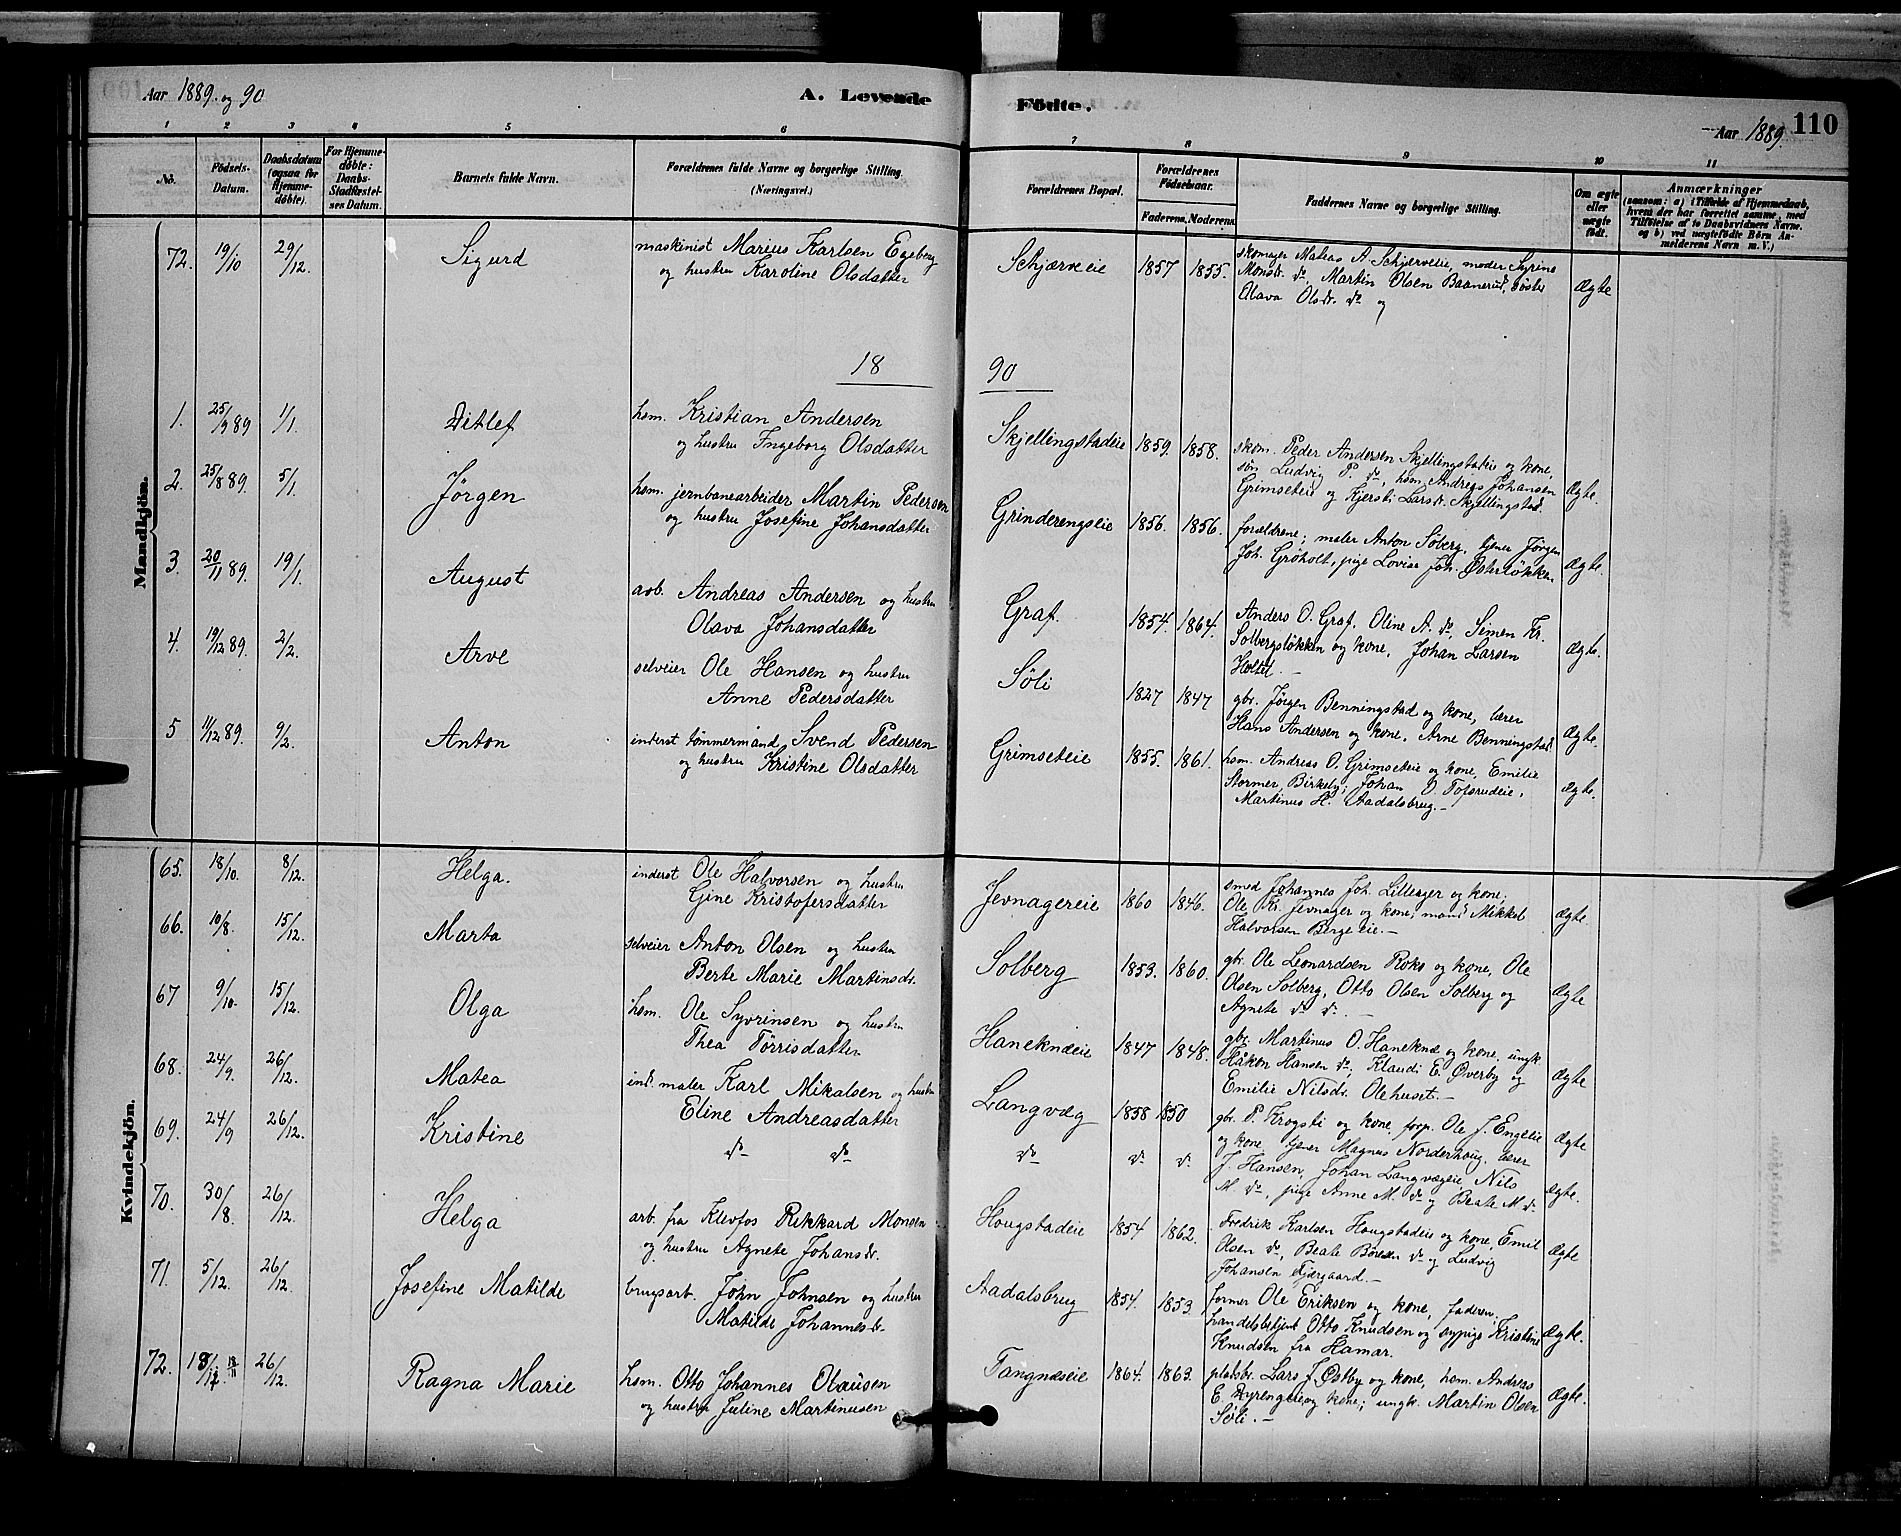 Aar 1889 og 90
A. Levende Fødte.
Aar 1889.
110
1 2 3 4 5 6 7 8 9 10 11
No.
Fødsels-Datum.
Daabsdatum (ogsaa for Hjemmedøbte).
For Hjemmedøbte: Daabs-Stadfæstelses Datum.
Barnets fulde Navn.
Forældrenes fulde Navne og borgerlige Stilling. (Næringsvei.)
Forældrenes Bopæl.
Forældrenes Fødselsaar.
Faderens. Moderens.
Faddernes Navne og borgerlige Stilling.
Om ægte eller uægte født.
Anmærkninger
(saasom: a) i Tilfælde af Hjemmedaab, hvem der har forrettet samme, med Tilføielse af to Daabsvidners Navne. og b) ved uægtefødte Børn Anmelderens Navn m. V.)
Mandkjøn.
72. 19/10 29/12. Sigurd maskinist Marius Karlsen Egeberg
og hustru Karoline Olsdatter
Schjærveie 1857 1855. skomager Mateas A. Schjærveie, moder Syrine
Monsdr. do, Martin Olsen Baanerud, søster
Olava Olsdr. do og
Ægte
18 90
1. 25/9 89 1/1. Ditlef hsm. Kristian Andersen
og hustru Ingeborg Olsdatter
Skjellingstadeie 1859. 1858. skom. Peder Andersen Skjellingstadeie og kone,
søn Ludvig P. do, hsm. Andreas Johansen
Grimseteie og Kjersti Larsdr. Skjellingstad.
Ægte.
2. 25/8 89. 5/1. Jørgen hsm. jernbanearbeider Martin Pedersen
og hustru Josefine Johansdatter
Grinderengseie 1856. 1856. forældrene; maler Anton Søberg, tjener Jørgen
Joh. Grøholt, pige Lovise Joh. Østerløkken
Ægte.
3. 20/11 89. 19/1. August arb. Andreas Andersen og hustru
Olava Johansdatter
Graf. 1854. 1864. Anders O. Graf, Oline A. do, Simen Kr.
Solbergsløkken og kone, Johan Larsen
Holtet. –
Ægte.
4. 19/12 89. 2/2. Arve selveier Ole Hansen og hustru
Anne Pedersdatter
Søli 1827 1847 gbr. Jørgen Benningstad og kone, lærer
Hans Andersen og kone, Arne Benningstad.
Ægte.
5 11/12 89. 9/2. Anton inderst tømmermand Svend Pedersen
og hustru Kristine Olsdatter
Grimseteie 1855. 1861. hsm. Andreas O. Grimseteie og kone, Emilie
Stormer, Birkely, Johan O. Tofsrudeie,
Martinus H. Aadalsbrug. –
Ægte.
Kvindekjøn.
65. 18/10. 8/12. Helga. inderst Ole Halvorsen og hustru
Gine Kristofersdatter
Jevnagereie 1860 1846. smed Johannes Joh. Lilleager og kone,
Ole Kr. Jevnager og kone, mand Mikkel
Halvorsen Bergeeie. –
Ægte.
66. 10/8. 15/12. Marta selveier Anton Olsen og hustru
Berte Marie Martinsdr.
Solberg 1853. 1860. gbr. Ole Leonardsen Roko og kone, Ole
Olsen Solberg, Otto Olsen Solberg og
Agnete do do. –
Ægte
67 9/10. 15/12. Olga hsm. Ole Syvrinsen og hustru
Thea Tørrisdatter
Hanekneeie 1847 1848. gbr. Martinus O. Haneknæ og kone, ungk.
Håkon Hansen do, Klaudi E. Øverby og
Emilie Nilsdr. Olehuset. –
Ægte
68. 24/9. 26/12. Matea ind. maler Karl Mikalsen og hustru
Eline Andreasdatter
Langvæg 1858 1850 gbr. P. Krogsti og kone, forp. Ole J. Engelie
og kone, tjener Magnus Norderhoug, lærer
Ægte
69. 24/9 26/12. Kristine do do
do do do J. Hansen, Johan Langvægeie, Nils
M. do, pige Anne M. do og Beate M. do
Ægte.
70. 30/8. 26/12. Helga arb. fra Klevfos Rikkard Monsen
og hustru Agnete Johansdr.
Hougstadeie 1854 1862. Fredrik Karlsen Hougstadeie og kone, Emil
Olsen do, Beate Børesen do og Ludvig
Johansen Fjærgaard. –
Ægte
71. 5/12. 26/12. Josefine Matilde brugsarb. John Johnsen og hustru
Matilde Johannesdr.
Aadalsbrug 1854. 1853. former Ole Eriksen og kone, faderen,
handelsbetjent Otto Knudsen og sypige Kristine
Knudsen fra Hamar.
Ægte.
72. 18/11 26/12. Ragna Marie hsm. Otto Johannes Olausen
og hustru Juline Martinusen
Tangnæseie 1864. 1863. pladsbr. Lars J. Østby og kone, hsm. Andreas
E. Myrengeie og kone; ungk. Martin Olsen
Søli. –
Ægte.